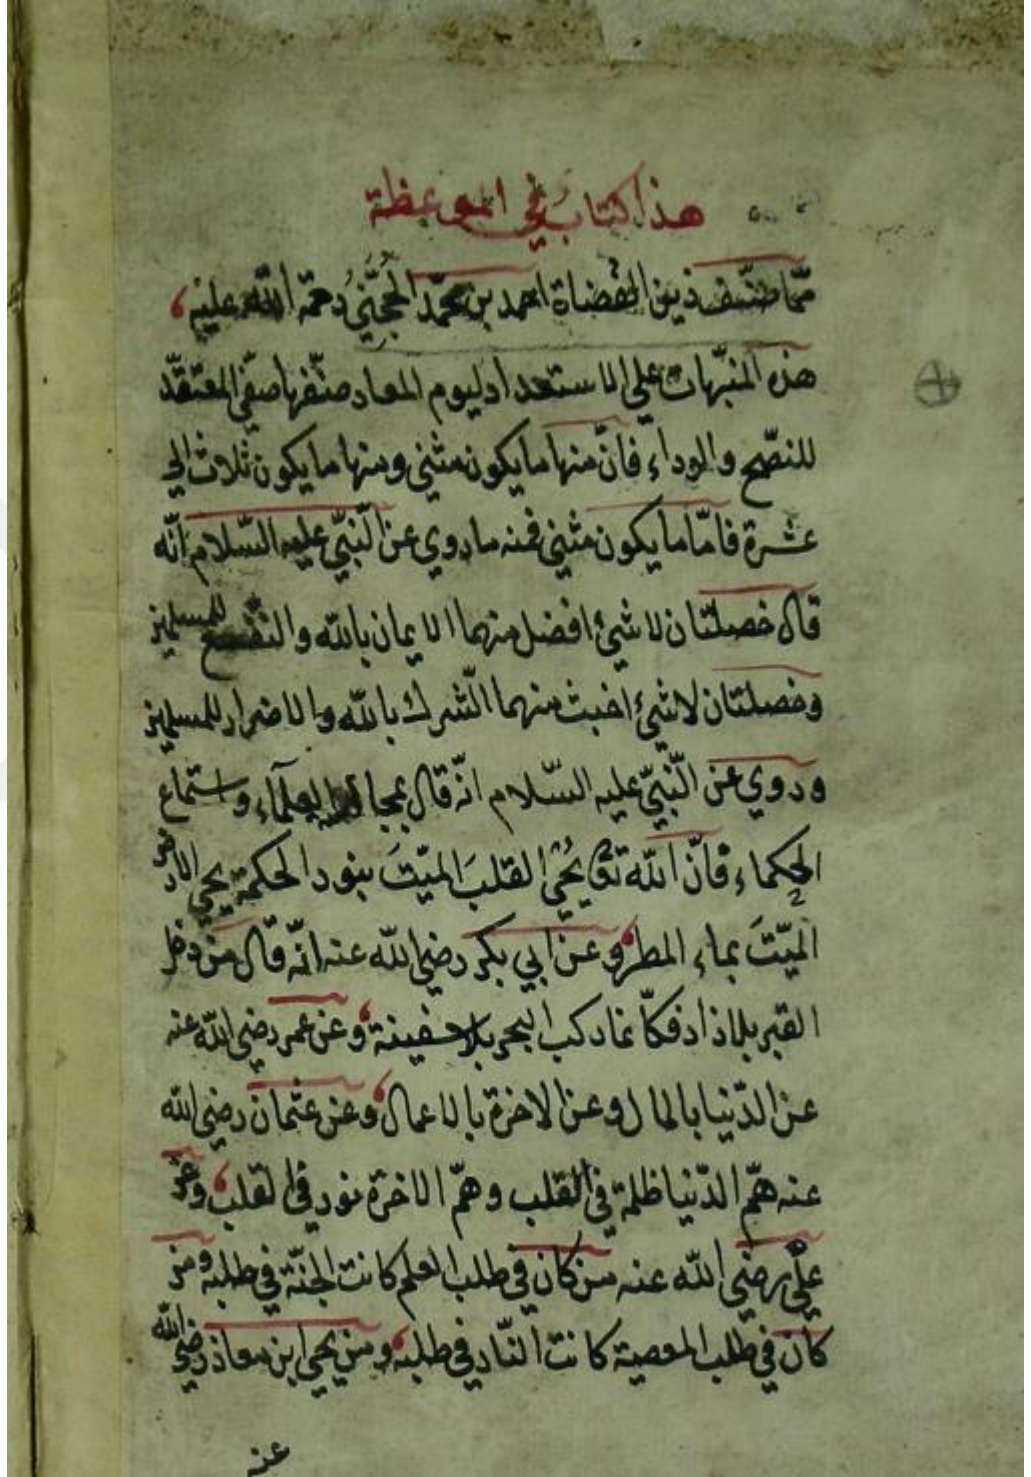 هذا كتابُ في الموعظة
ممّا صنّف زين القضاة احمد بن محمّد الحجّيّ رحمة الله عليه
هذه المنبّهات على الاستعداد ليوم المعاد صنّفها صفّي المعتقّد
للنصّح والوداء فانّ منها ما يكون مثنى ومنها ما يكون ثلاث الى
عشرة فامّا ما يكون مثنى فمنه ما روي عن النّبيّ عليه السّلام انّه
قال خصلتان لا شئ افضل منهما الايمان بالله والنّفع للمسلمين
وخصلتان لا شئ اخبث منهما الشّرك بالله والاضرار للمسلمين
وروي عن النّبيّ عليه السّلام انّه قال بمجالسة العلمآء واستماع
الحكماء فانّ الله تعالى يُحْيي القلبَ الميّتَ بنور الحكمة يحيي الارض
الميّتَ بماء المطر وعن ابي بكر رضي الله عنه انّه قال من دخل
القبر بلا زاد فكاّنما ركب البحر بلا سفينة وعن عمر رضي الله عنه
عن الدّنيا بالمال وعن الاخرة بالاعمال وعن عثمان رضي الله
عنه همّ الدّنيا ظلمة في القلب وهمّ الاخرة نور في القلب وعن
عليّ رضي الله عنه من كان في طلب العلم كانت الجنّة في طلبه ومن
كان في طلب المعصية كانت النّار في طلبه ومن يحيى ابن معاذ رضي الله
عنه